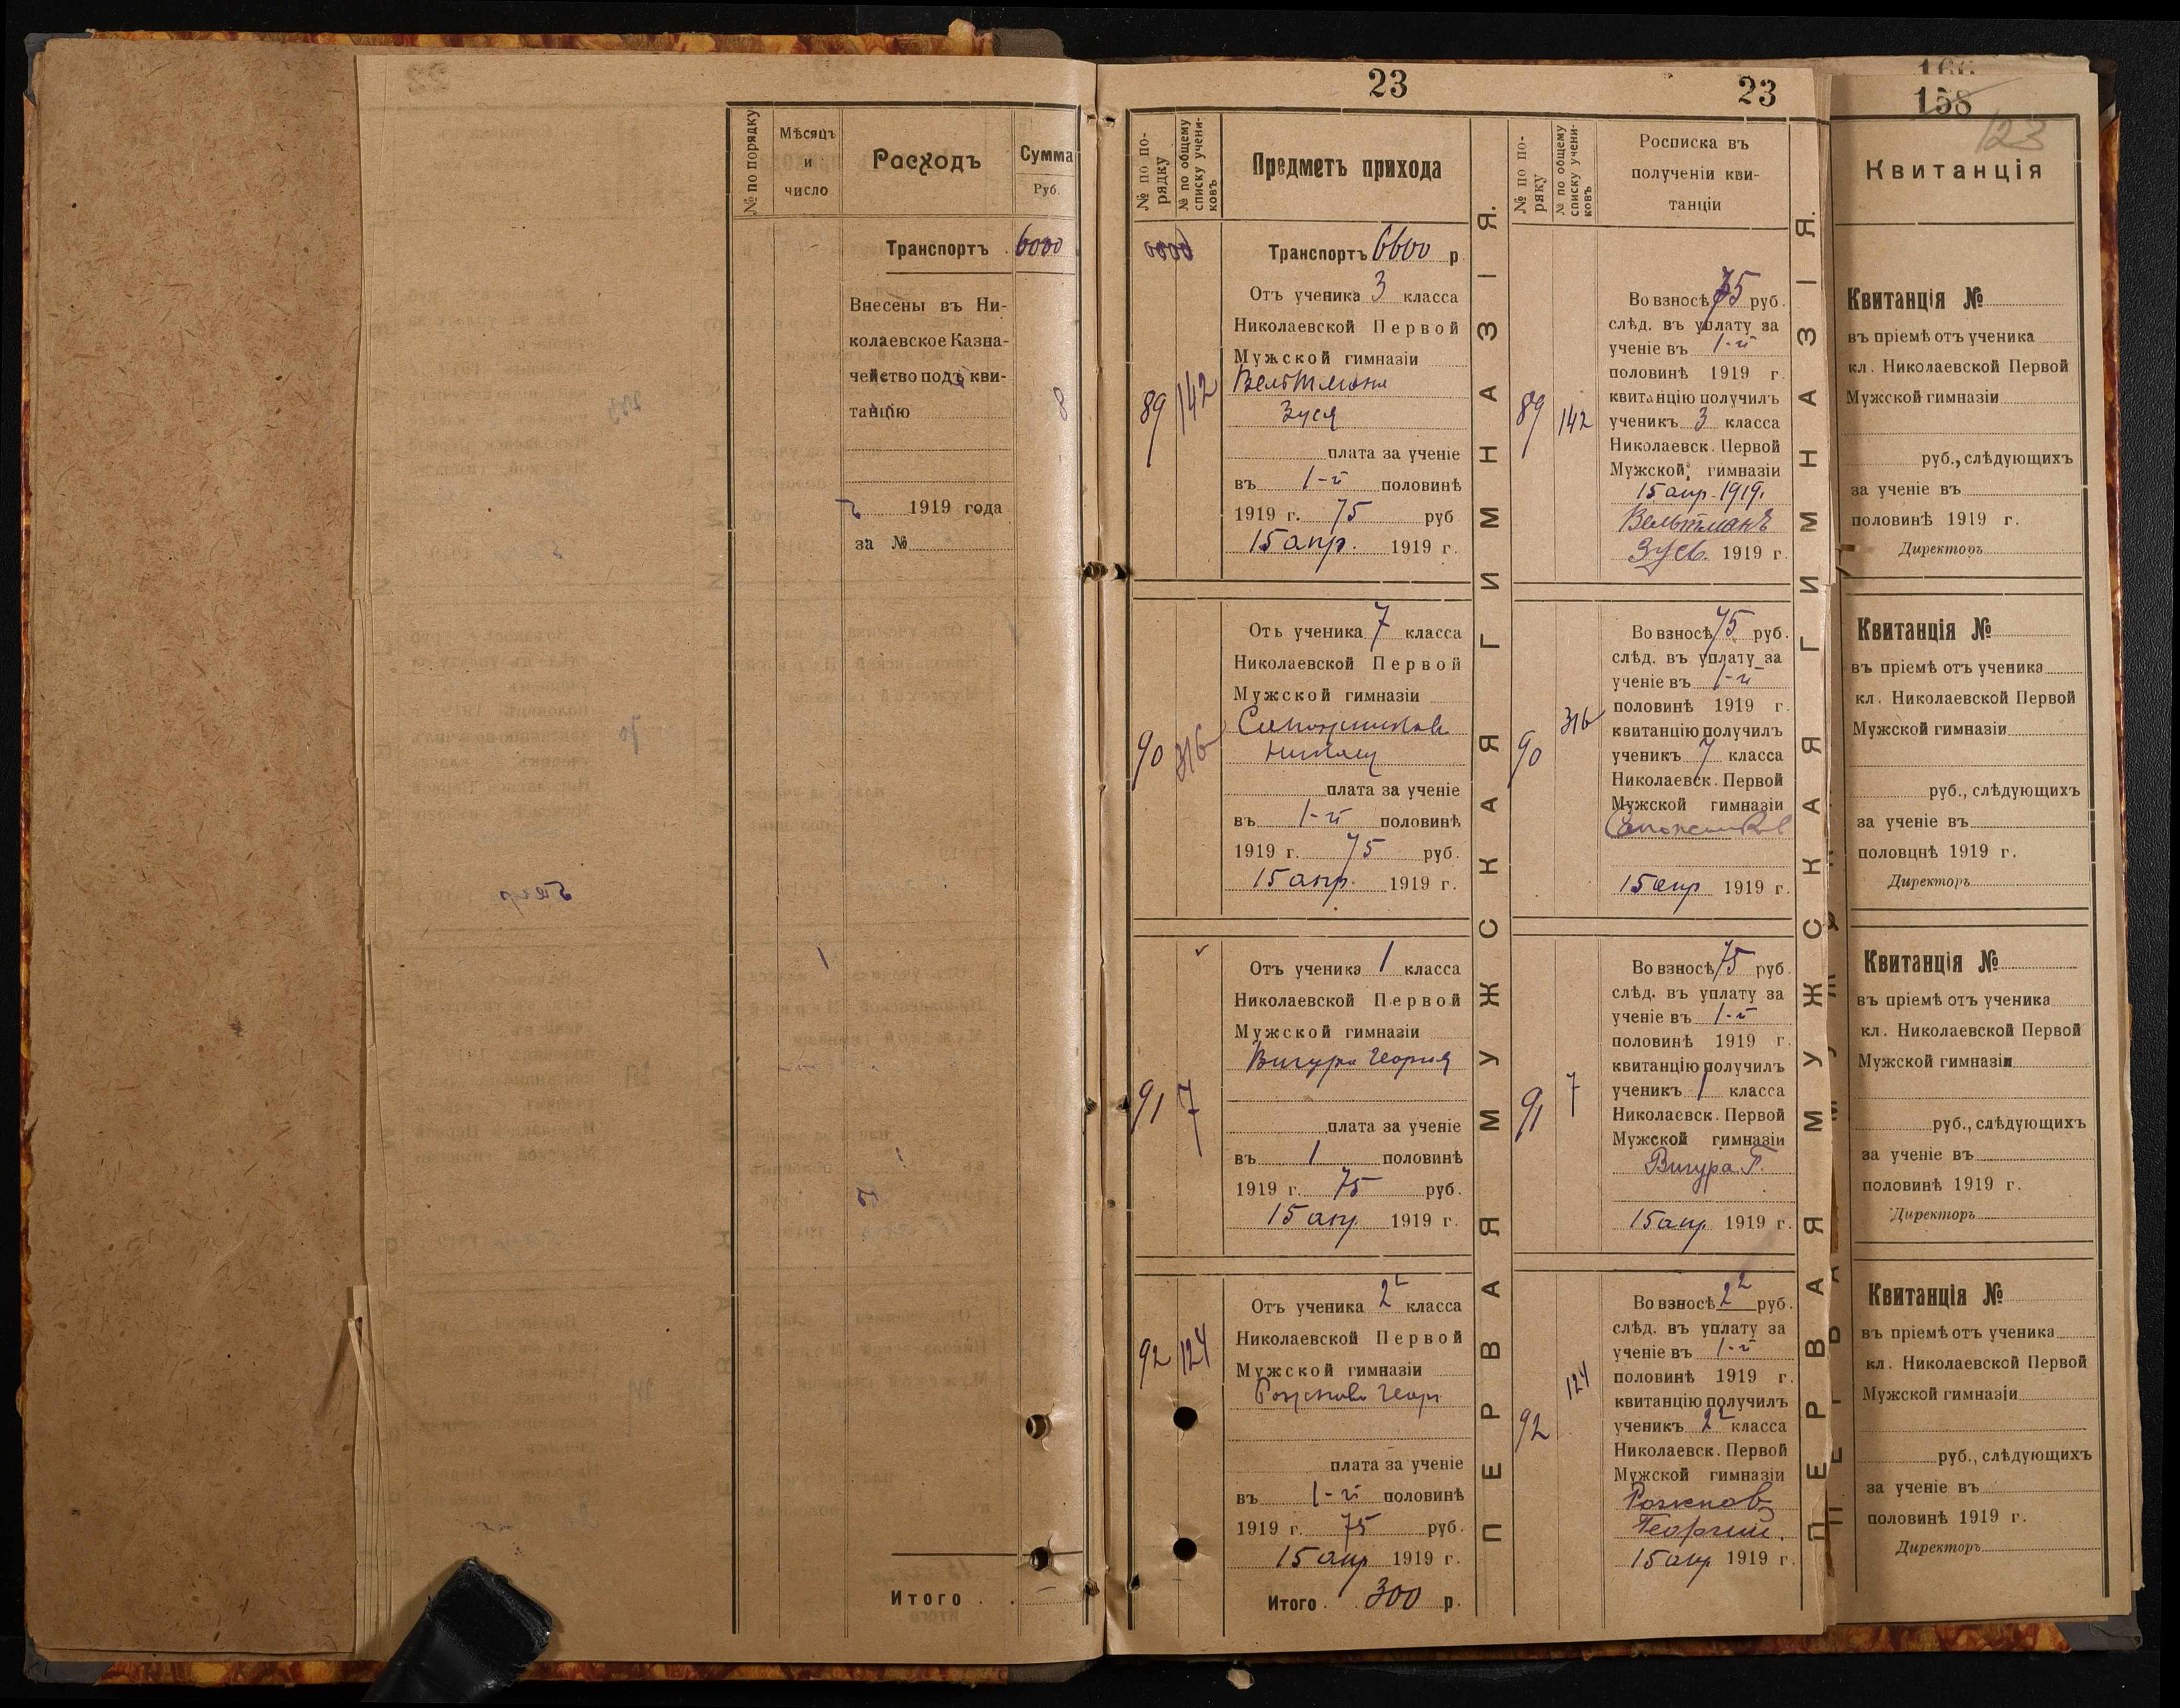 № по порядку
Мѣсяцъ
и
число
Расходъ
Сумма
Руб.
Транспортъ . 6000
Внесены въ Ни-
колаевское Казна-
чейство подъ кви-
танцію
1919 года
за №
Итого . .
23
№ по по-
рядку
№ по общему
списку учени-
ковъ
Предметъ прихода
Транспортъ 6600 р.
89 142
Отъ ученика 3 класса
Николаевской Первой
Мужской гимназіи
Вельтмана
Зуся
плата за ученіе
въ 1-й половинѣ
1919 г. 75 руб
15 апр. 1919 г.
90 316
Отъ ученика 7 класса
Николаевской Первой
Мужской гимназіи
плата за ученіе
въ 1-й половинѣ
1919 г. 75 руб.
15 апр. 1919 г.
91 7
Отъ ученика 1 класса
Николаевской Первой
Мужской гимназіи
Вигура Георгія
плата за ученіе
въ 1 половинѣ
1919 г. 75 руб.
15 апр 1919 г.
92 124
Отъ ученика 2² класса
Николаевской Первой
Мужской гимназіи
плата за ученіе
въ 1-й половинѣ
1919 г. 75 руб.
15 апр 1919 г.
Итого . 300 р.
ПЕРВАЯ МУЖСКАЯ ГИМНАЗІЯ.
23
№ по по-
ряку
№ по общему
списку учени-
ковъ
Росписка въ
полученіи кви-
танціи
89 142
Во взносѣ 75 руб.
слѣд. въ уплату за
ученіе въ 1-й
половинѣ 1919 г.
квитанцію получилъ
ученикъ 3 класса
Николаевск. Первой
Мужской гимназіи
15 апр. 1919.
Вельтманъ
1919 г.
90 316
Во взносѣ 75 руб.
слѣд. въ уплату за
ученіе въ 1-й
половинѣ 1919 г.
квитанцію получилъ
ученикъ 7 класса
Николаевск. Первой
Мужской гимназіи
15 апр 1919 г.
91 7
Во взносѣ 75 руб.
слѣд. въ уплату за
ученіе въ 1-й
половинѣ 1919 г.
квитанцію получилъ
ученикъ 1 класса
Николаевск. Первой
Мужской гимназіи
Вигура Г.
15 апр 1919 г.
92 124
Во взносѣ 2² руб.
слѣд. въ уплату за
ученіе въ 1-й
половинѣ 1919 г.
квитанцію получилъ
ученикъ 2² класса
Николаевск. Первой
Мужской гимназіи
Георгий.
15 апр 1919 г.
ПЕРВАЯ МУЖСКАЯ ГИМНАЗІЯ.
158
123
Квитанція
Квитанція №
въ пріемѣ отъ ученика
кл. Николаевской Первой
Мужской гимназіи
руб., слѣдующихъ
за ученіе въ
половинѣ 1919 г.
Директоръ
Квитанція №
въ пріемѣ отъ ученика
кл. Николаевской Первой
Мужской гимназіи
руб., слѣдующихъ
за ученіе въ
половцнѣ 1919 г.
Директоръ
Квитанція №
въ пріемѣ отъ ученика
кл. Николаевской Первой
Мужской гимназіи
руб., слѣдующихъ
за ученіе въ
половинѣ 1919 г.
Директоръ
Квитанція №
въ пріемѣ отъ ученика
кл. Николаевской Первой
Мужской гимназіи
руб., слѣдующихъ
за ученіе въ
половинѣ 1919 г.
Директоръ